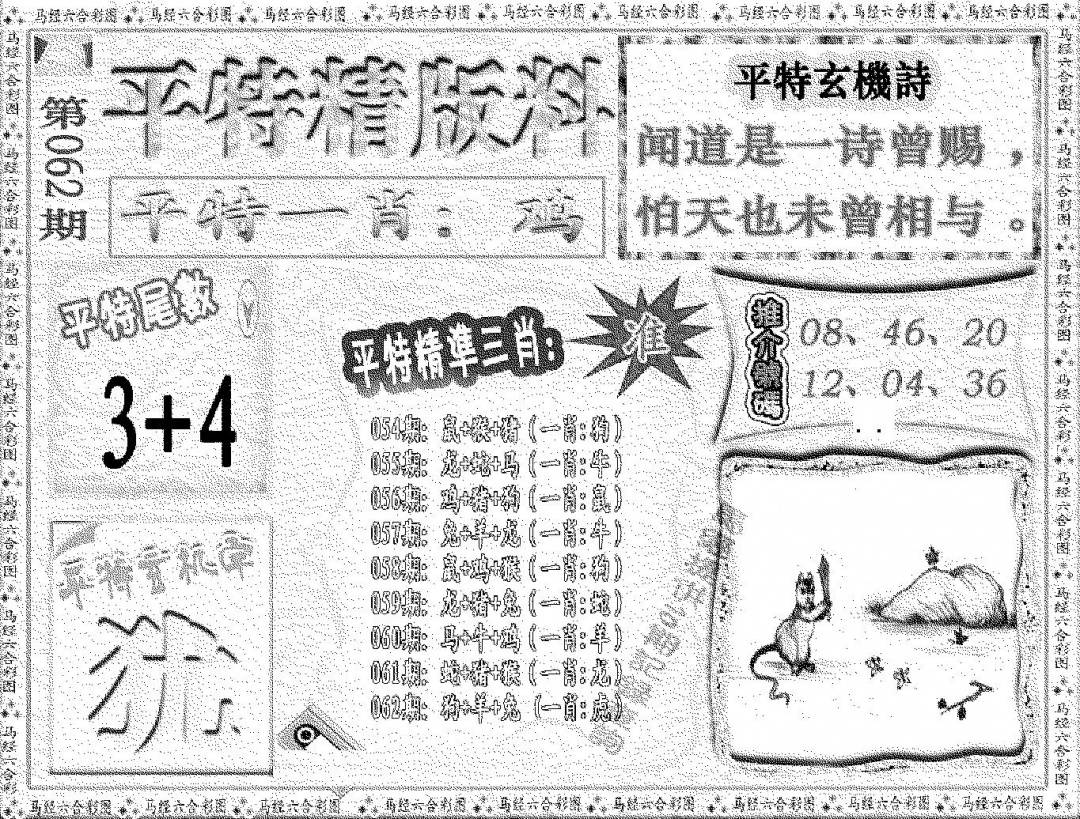 马经六合彩图 马经六合彩图 马经六合彩图 马经六合彩图 马经六合彩图 马经六合彩图 马经六合彩图 马经六合彩图 马经六合彩图
第062期
平特精版料
平特一肖：鸡
平特玄機詩
闻道是一诗曾赐，
怕天也未曾相与。
平特尾数
3+4
平特精準三肖：
准
054期：鼠+猴+猪（一肖：狗）
055期：龙+蛇+马（一肖：牛）
056期：鸡+猪+狗（一肖：鼠）
057期：兔+羊+龙（一肖：牛）
058期：鼠+鸡+猴（一肖：狗）
059期：龙+猪+兔（一肖：蛇）
060期：马+牛+鸡（一肖：羊）
061期：蛇+猪+猴（一肖：龙）
062期：狗+羊+兔（一肖：虎）
推介號碼
08、46、20
12、04、36
平特玄机字
马经六合彩图 马经六合彩图 马经六合彩图 马经六合彩图 马经六合彩图 马经六合彩图 马经六合彩图 马经六合彩图 马经六合彩图